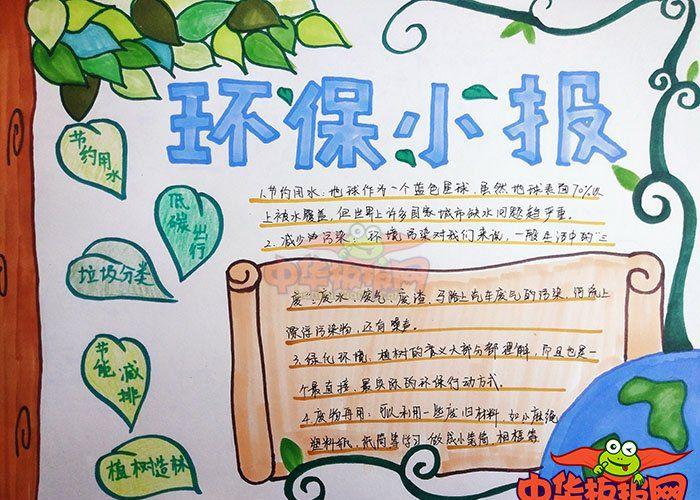 环保小报
节约用水
低碳出行
垃圾分类
节能减排
植树造林
1.节约用水:地球作为一个蓝色星球,虽然地球表面70%以
上被水覆盖,但世界上许多国家城市缺水问题趋严重。
2.减少的污染:环境污染对我们来说,一般生活中的"三
废":废水、废气、废渣,马路上汽车废气的污染,河流上
漂浮污染物,还有噪声。
3.绿化环境:植树的意义大部分都理解,而且也是一
个最直接、最实际的环保行动方式.
4.废物再用:可以利用一些废旧材料,如小麻绳
塑料纸、纸筒等学习做成小笔筒、相框等
中华板报网
中华板报网